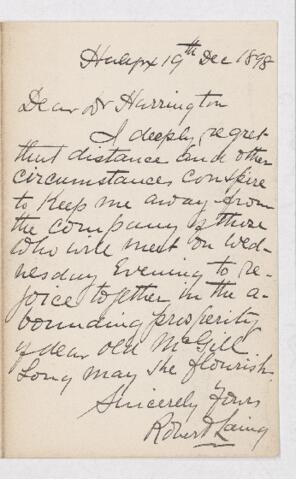 Halifax 19th Dec 1898
Dear Dr Harrington
I deeply regret
that distance and other
circumstances conspire
to keep me away from
the company of those
who will meet on Wed-
nesday Evening to re-
joice together in the a-
bounding prosperity
of dear old McGill
Long may she flourish.
Sincerely Yours
Robert Laing